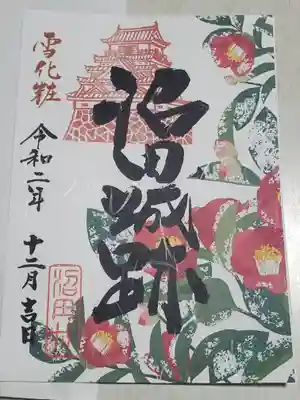 沼田城跡
雪化粧
令和二年 十二月吉日